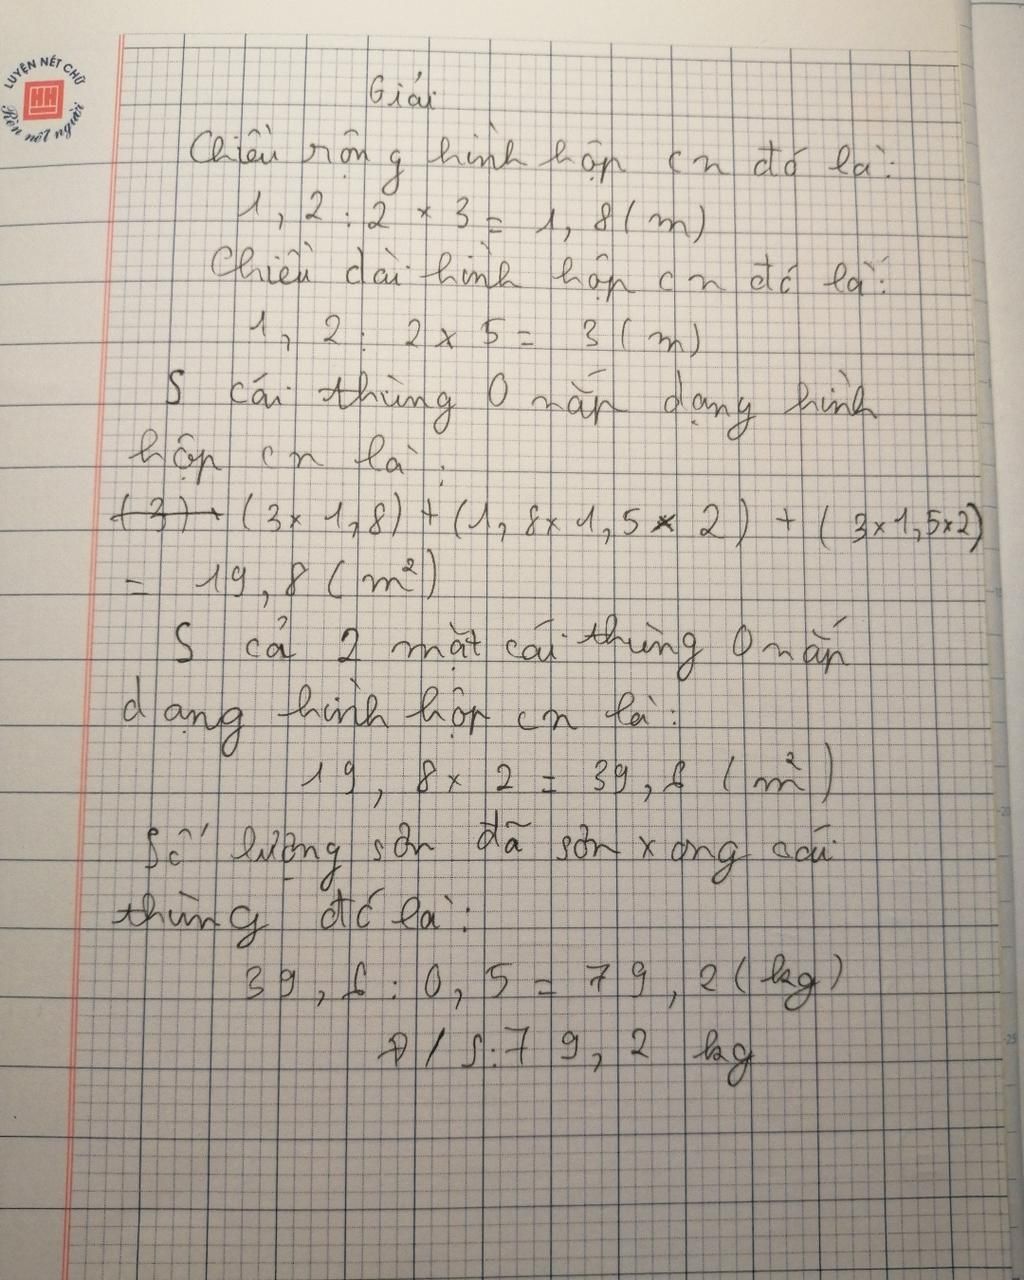 LUYỆN NÉT CHỮ
HH
Rèn nết người
Giải
Chiều rộng hình hộp cn đó là:
1,2 : 2 × 3 = 1,8 (m)
Chiều dài hình hộp cn đó là:
1,2 : 2 × 5 = 3 (m)
S cái thùng 0 nắp dạng hình
hộp cn là:
(3) + (3 × 1,8) + (1,8 × 1,5 × 2) + (3 × 1,5 × 2)
= 19,8 (m²)
S cả 2 mặt cái thùng 0 nắp
dạng hình hộp cn là:
19,8 × 2 = 39,6 (m²)
Số lượng sơn đã sơn xong cái
thùng đó là:
39,6 : 0,5 = 79,2 (kg)
Đ/S: 79,2 kg